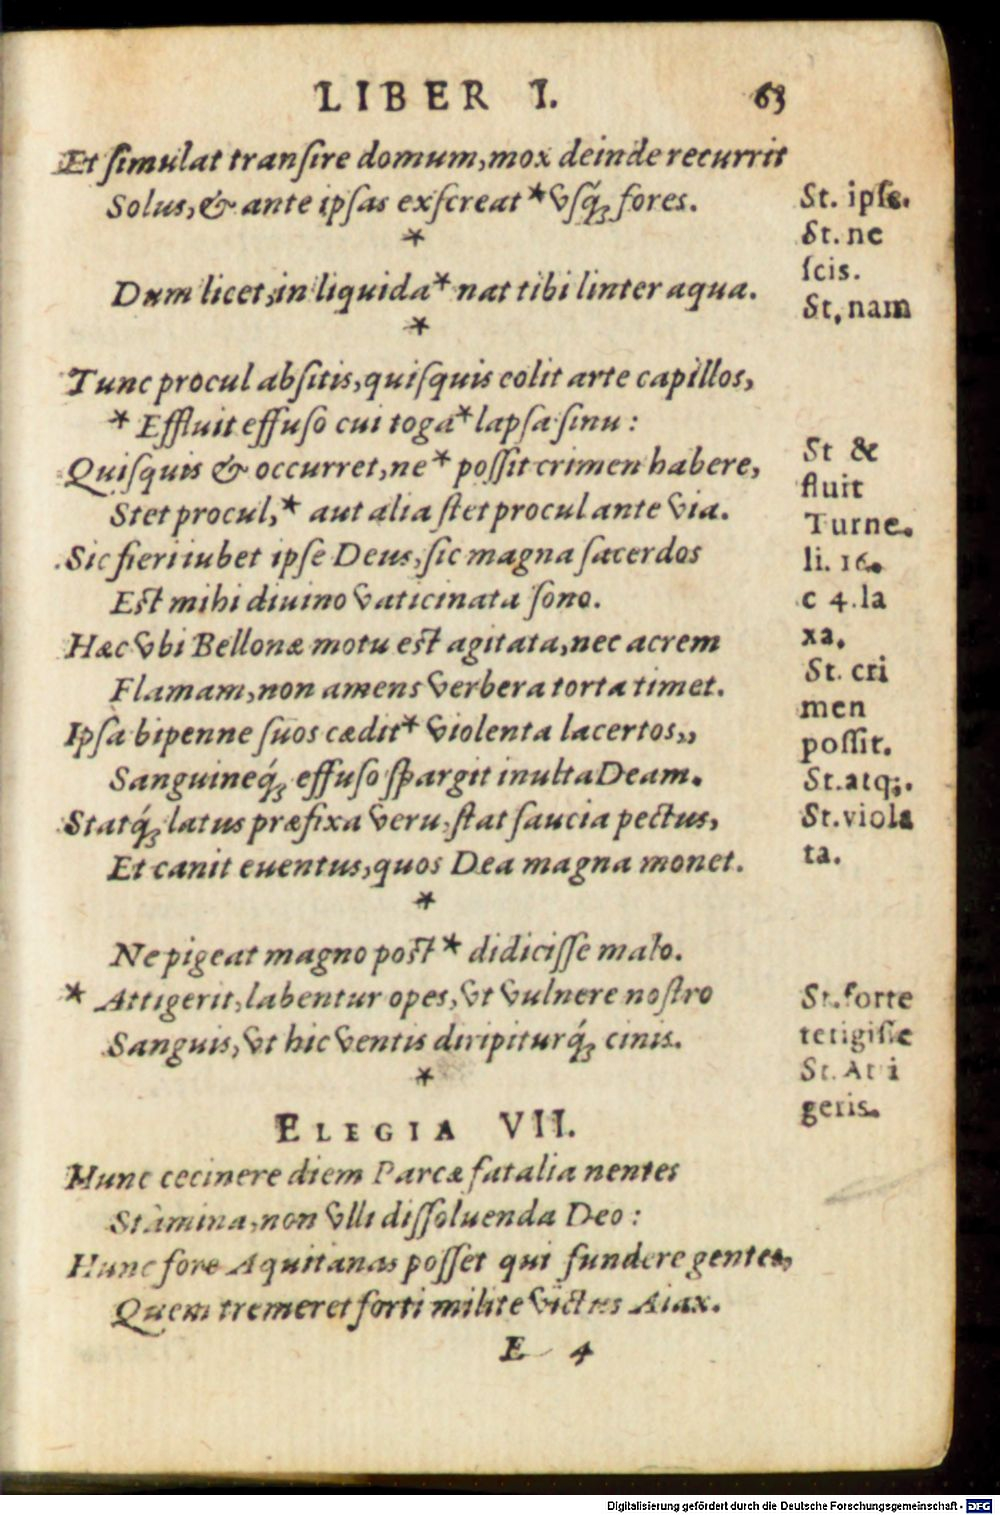 LIBER I. 63
Et ſimulat tranſire domum, mox deinde recurrit
Solus, & ante ipſas exſcreat * vſq́; fores.
*
Dum licet, in liquida * nat tibi linter aqua.
*
Tunc procul abſitis, quiſquis colit arte capillos,
* Effluit effuſo cui toga * lapſa ſinu:
Quiſquis & occurret, ne * poſſit crimen habere,
Stet procul, * aut alia ſtet procul ante via.
Sic fieri iubet ipſe Deus, ſic magna ſacerdos
Eſt mihi diuino vaticinata ſono.
Hæc vbi Bellonæ motu eſt agitata, nec acrem
Flamam, non amens verbera torta timet.
Ipſa bipenne ſuos cædit * violenta lacertos,,
Sanguineq́; effuſo ſpargit inulta Deam.
Statq́; latus præfixa veru, ſtat ſaucia pectus,
Et canit euentus, quos Dea magna monet.
*
Ne pigeat magno poſt * didiciſſe malo.
* Attigerit, labentur opes, vt vulnere noſtro
Sanguis, vt hic ventis diripiturq́; cinis.
*
ELEGIA VII.
Hunc cecinere diem Parcæ fatalia nentes
Stamina, non vlli diſſoluenda Deo:
Hunc fore Aquitanas poſſet qui fundere gentes,
Quem tremeret forti milite victus Aiax.
E 4
St. ipſe.
St. ne
ſcis.
St. nam
St &
fluit
Turne.
li. 16.
c 4. la
xa.
St. cri
men
poſſit.
St. atq;.
St. viola
ta.
St. forte
tetigiſſe
St. Atti
geris.
Digitalisierung gefördert durch die Deutsche Forschungsgemeinschaft - DFG